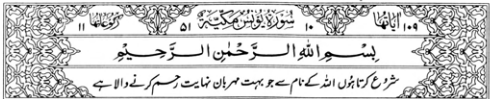 اٰیَاتُہَا ۱۰۹ ۱۰ سُوْرَۃُ یُوْنُسَ مَکِّیَّۃٌ ۵۱ رُکُوْعَاتُہَا ۱۱
بِسْمِ اللّٰهِ الرَّحْمٰنِ الرَّحِیْمِ
شروع کرتا ہوں اللہ کے نام سے جو بہت مہربان نہایت رحم کرنے والا ہے